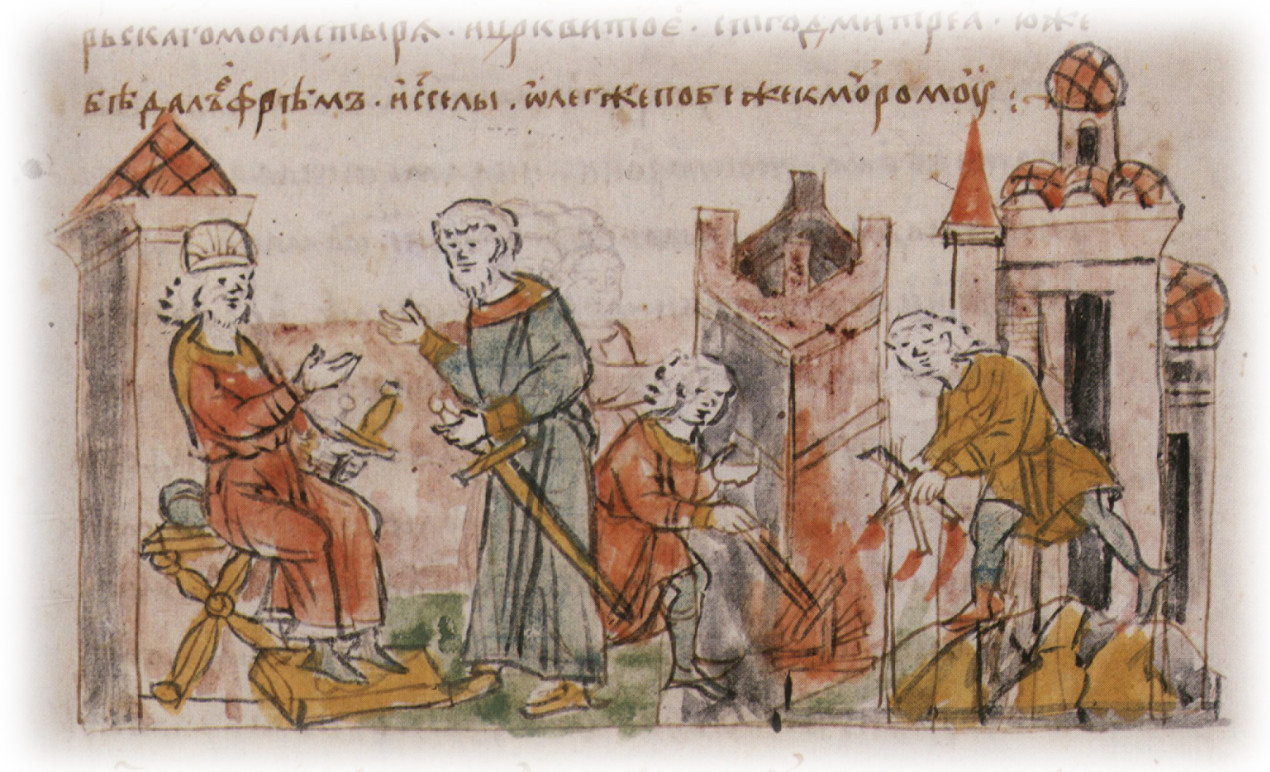 рьскагомонастырѧ · ицрквитоє · стгодмитреа · юже
бѣдалъефрѣмъ · исселы · ѡлегжепобежекмоуромоу :